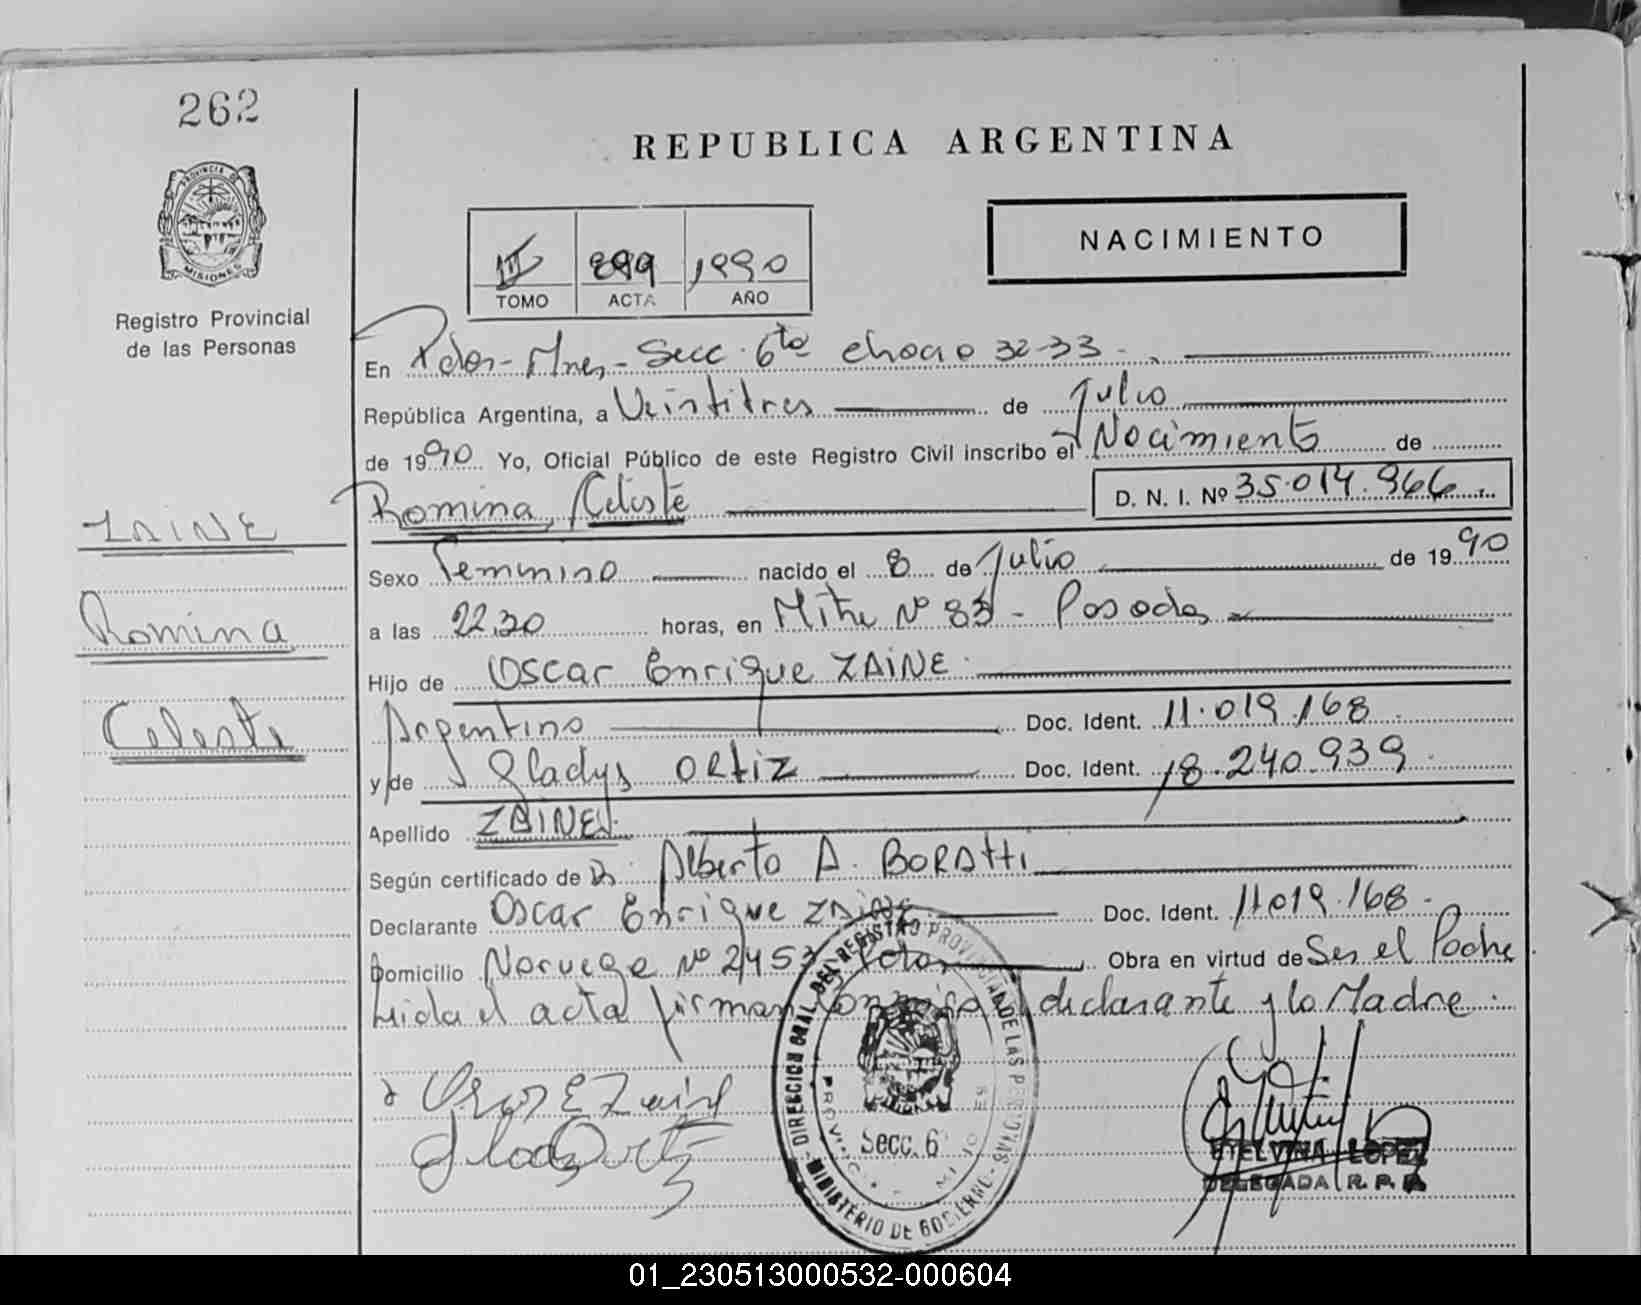 262
REPUBLICA ARGENTINA
PROVINCIA DE MISIONES
Registro Provincial
de las Personas
III 1990
TOMO ACTA AÑO
NACIMIENTO
En Pdas - Mnes - Secc. 6ta chaco 32-33
República Argentina, a Veintitres de Julio
de 1990 Yo, Oficial Público de este Registro Civil inscribo el Nacimiento de
Romina Celeste D. N. I. Nº 35.014.966
ZAINE
Romina
Celeste
Sexo Femenino nacido el 8 de Julio de 1990
a las 22,30 horas, en Mitre Nº 83 - Posadas
Hijo de Oscar Enrique ZAINE
Argentino Doc. Ident. 11.019.168
y de Gladys ORtiz Doc. Ident. 18.240.939
Apellido ZAINE
Según certificado de Dr Alberto A. BORAtti
Declarante Oscar Enrique ZAINE Doc. Ident. 11.019.168
Domicilio Noruega Nº 2453 Pdas Obra en virtud de Ser el Padre
Leida el acta firman conmigo el declarante y la Madre
Oscar E Zaine
DIRECCION GRAL. DEL REGISTRO PROVINCIAL DE LAS PERSONAS
MINISTERIO DE GOBIERNO
PROVINCIA MISIONES
Secc. 6
ETELVINA LOPEZ
DELEGADA R. P. P.
01_230513000532-000604